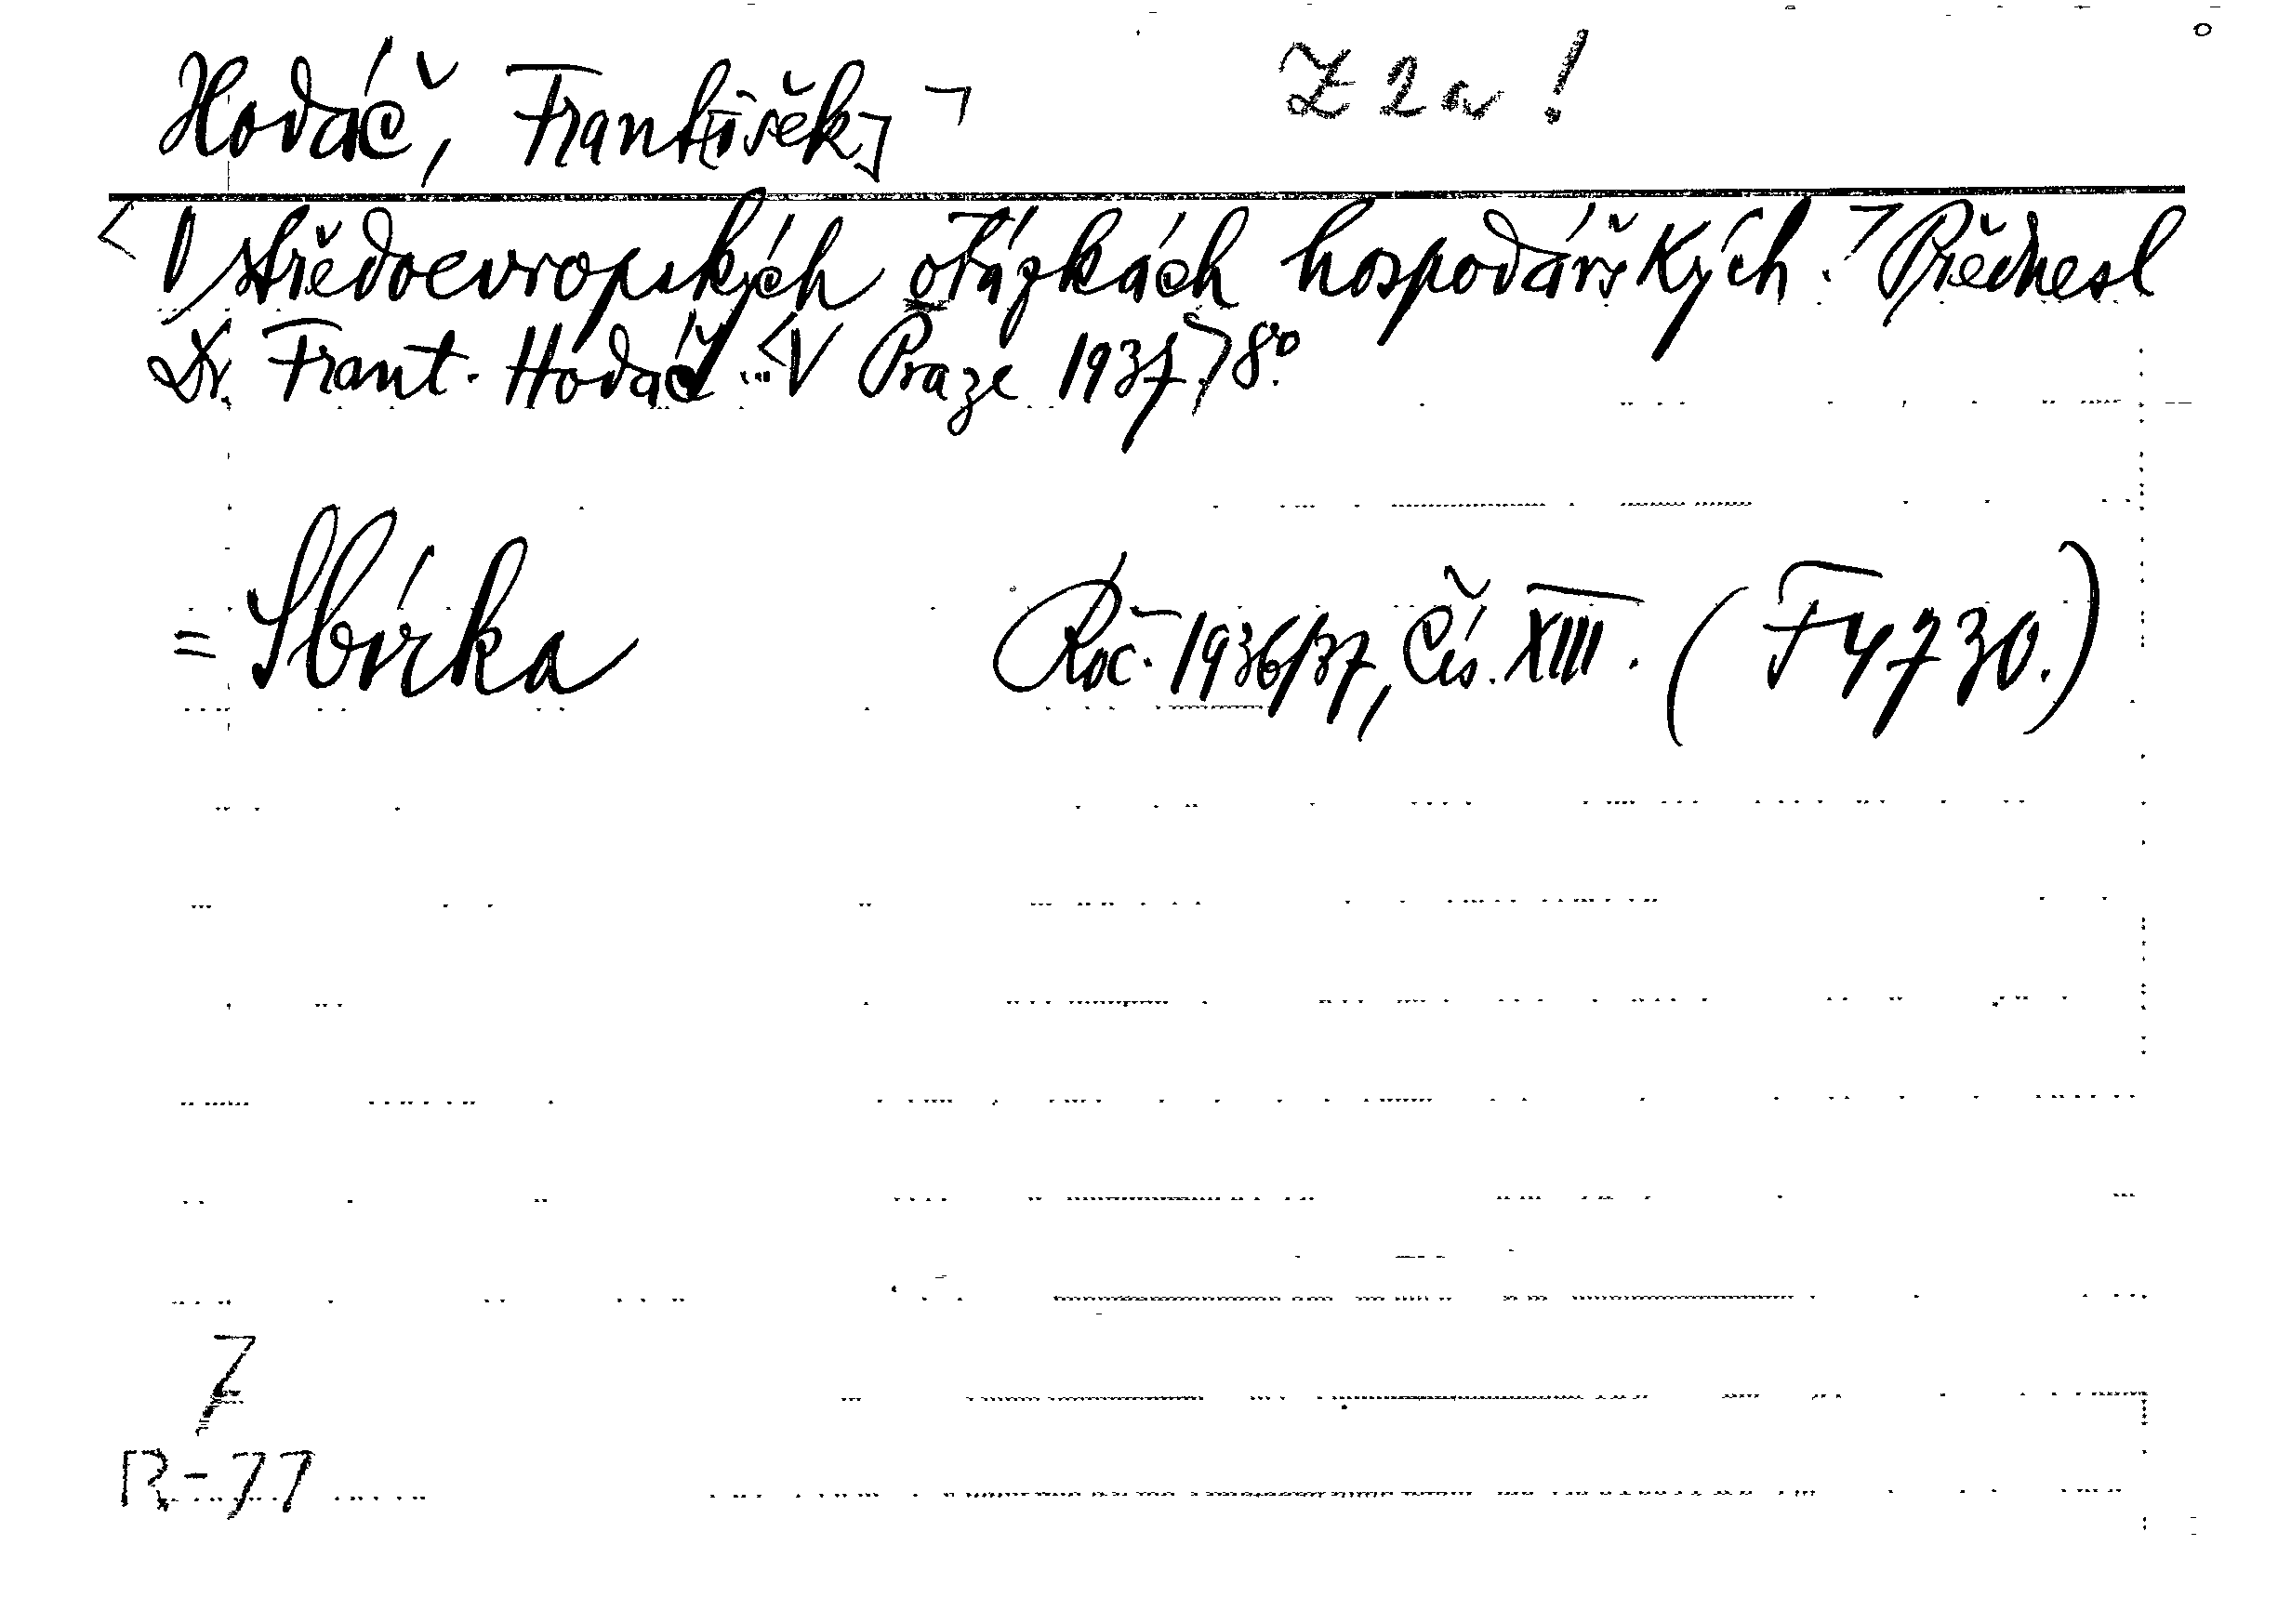 Hodáč, František Z 2a!
O středoevropských otázkách hospodářských. Přednesl
Dr. Frant. Hodáč ... V Praze 1937. 8°.
= Sbírka Roč. 1936/37, Čís. XIII. (F 4730.)
Z
R-77